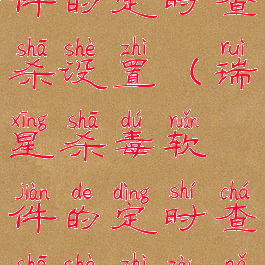 件的定时查
shā shè zhì ruì
杀设置（瑞
xīng shā dú ruǎn
星杀毒软
jiàn de dìng shí chá
件的定时查
shā shè zhì